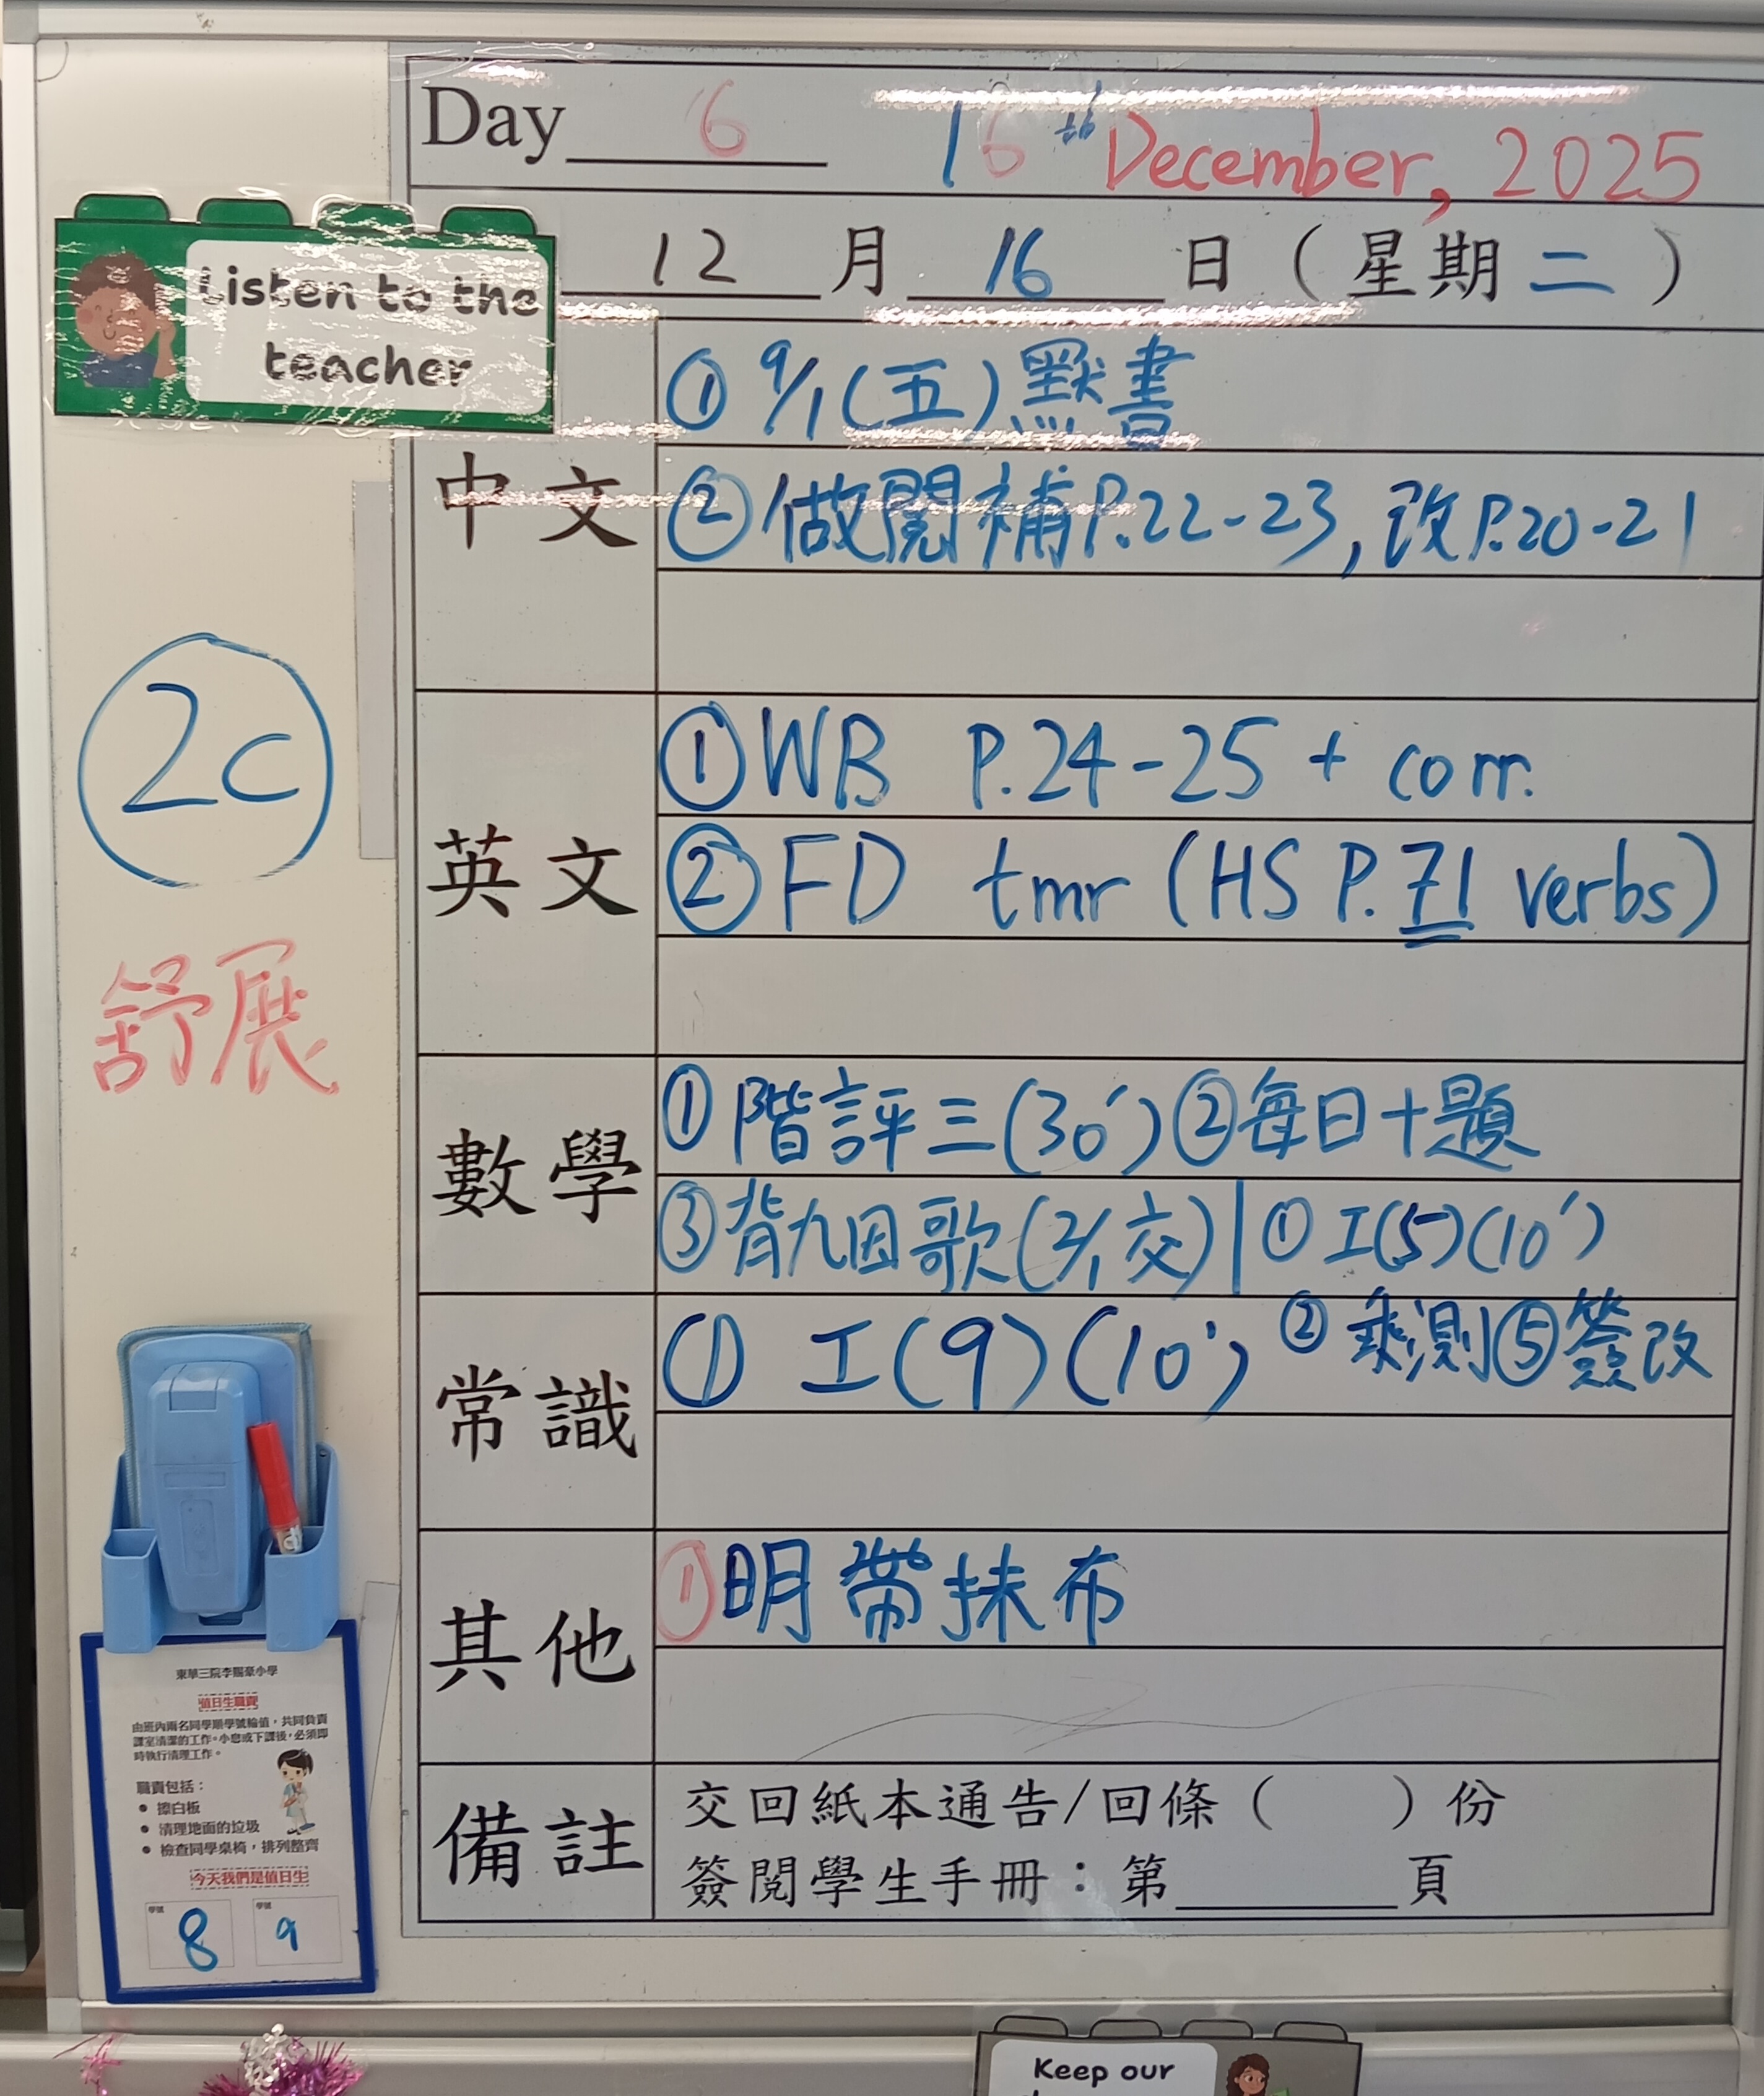 Day 6 16th December, 2025
12 月 16 日 ( 星期 二 )
Listen to the
teacher
中文
① 9/1 (五) 默書
② 做閱補 P.22-23, 改 P.20-21
2C
舒展
英文
① WB P.24-25 + corr.
② FD tmr (HS P.71 verbs)
數學
① 階評三 (30') ② 每日十題
③ 背九因歌 (2/1 交) | ① 工(5) (10')
常識
① 工(9) (10') ② 乘測⑤簽改
其他
① 明帶抹布
備註
交回紙本通告/回條 ( ) 份
簽閱學生手冊：第______頁
東華三院李賜豪小學
值日生職責
由班內兩名同學順學號輪值，共同負責
課室清潔的工作。小息或下課後，必須即
時執行清理工作。
職責包括：
● 擦白板
● 清理地面的垃圾
● 檢查同學桌椅，排列整齊
今天我們是值日生
學號 8 學號 9
Keep our